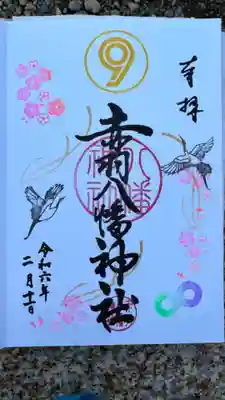 ⑨
奉拝
赤羽八幡神社
令和六年
二月十一日